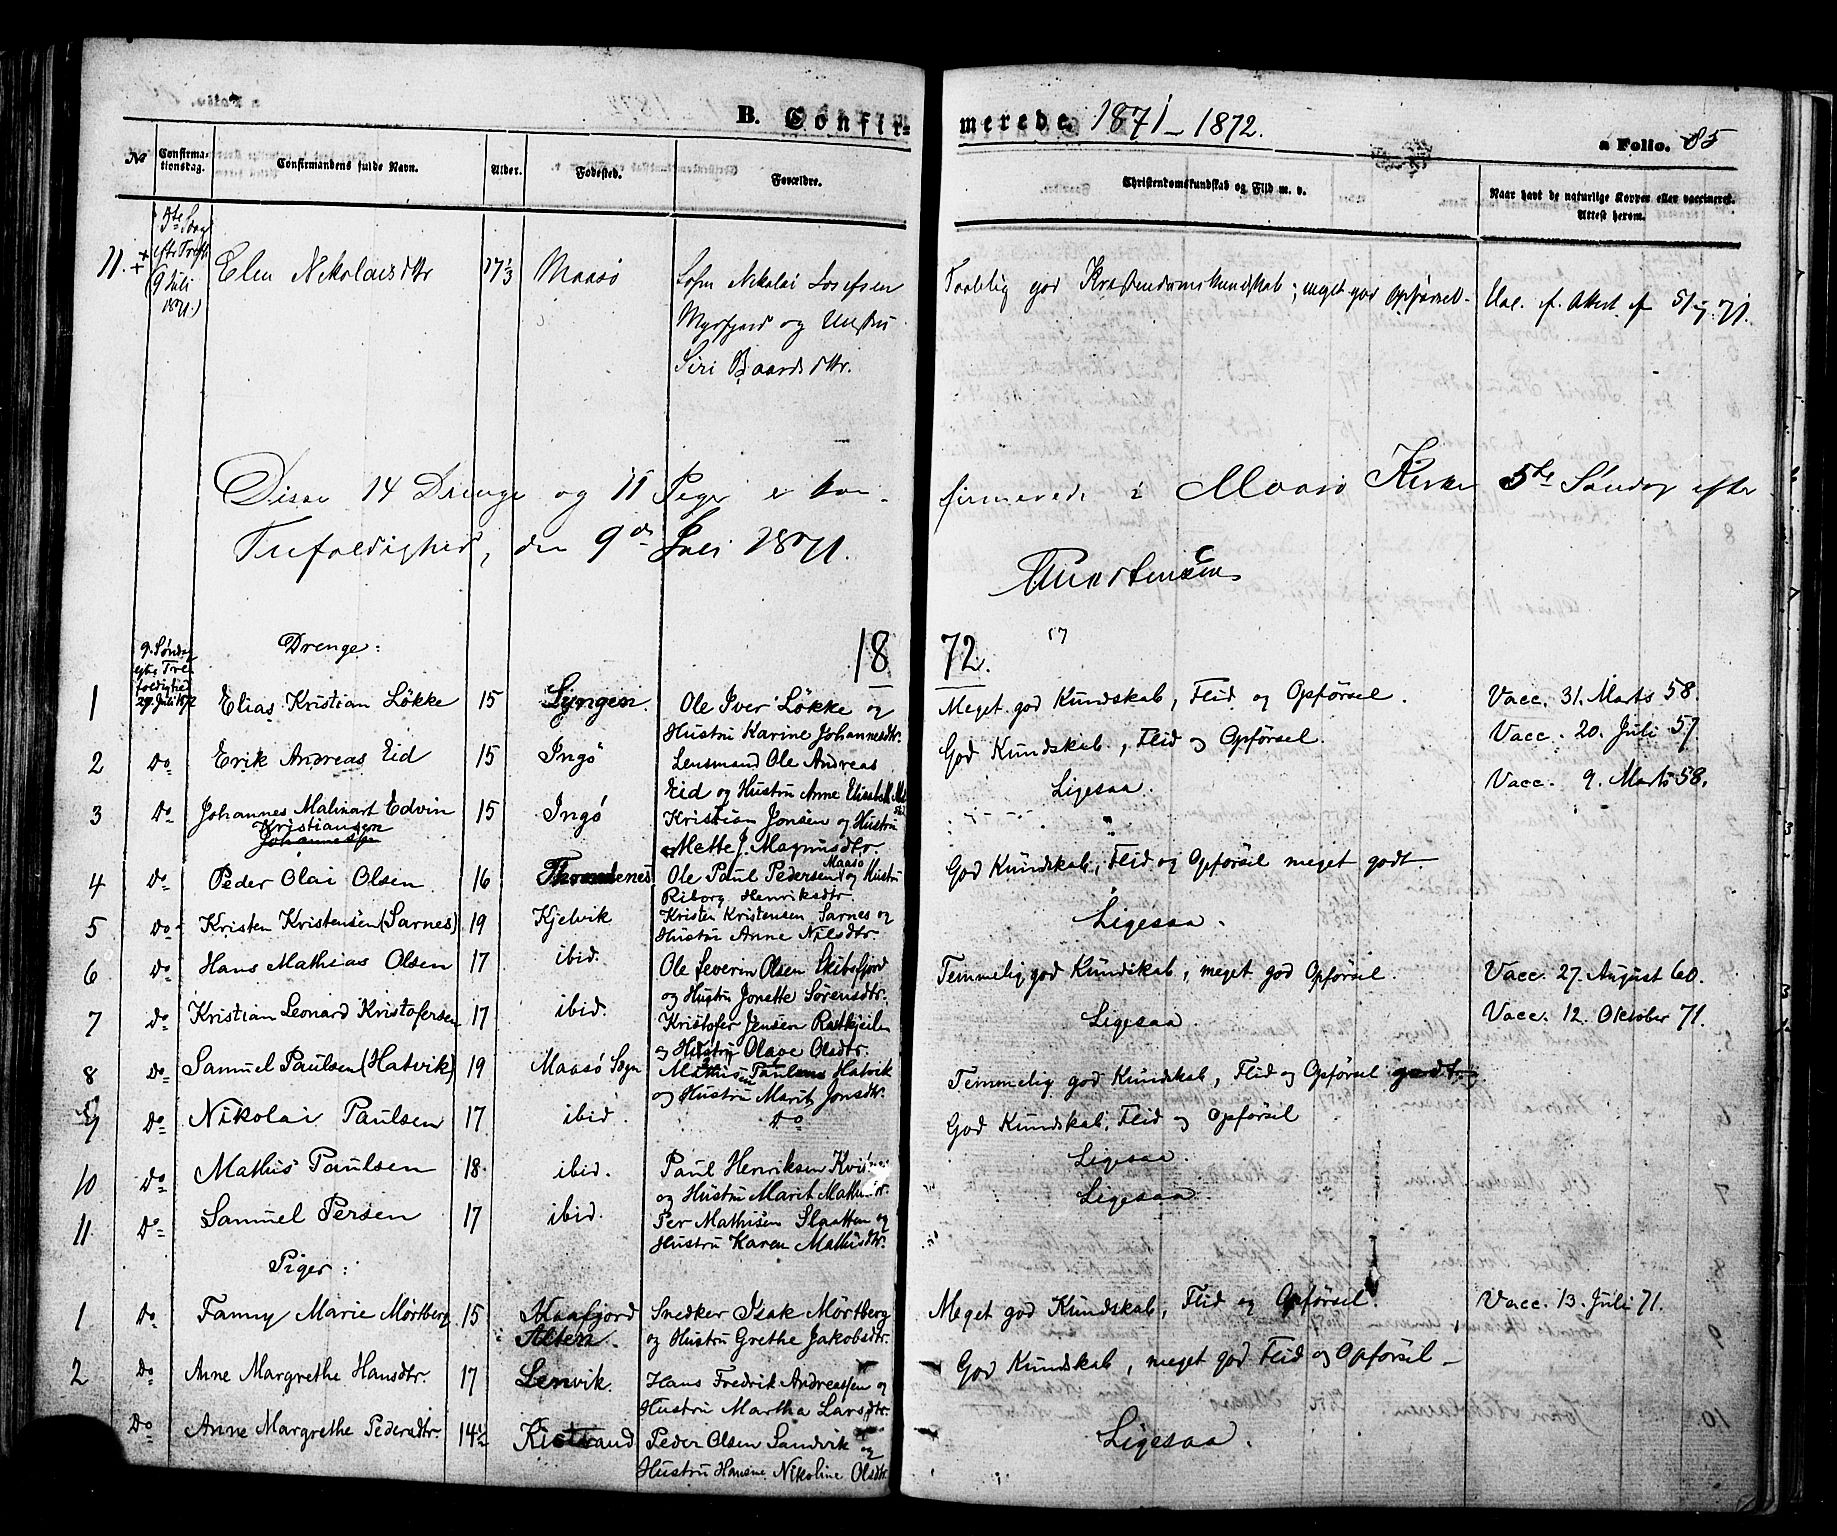 B. Confirmerede 1871 - 1872.
a Folio. 85
No
Confirmationsdag.
Confirmandens fulde Navn.
Alder.
Fødested.
Forældre.
Christendomskundskab og Flid m. v.
Naar havt de naturlige Kopper eller vaccineret. Attest herom.
11. 5te Søndag efter Tref. (9 Juli 1871.) Elen Nikolaisdtr 17 1/3 Maasø
Nikolai Josefsen
Myrfjord og Hustru
Siri Baardsdtr.
Taalelig god Kristendomskundskab; meget god Opførsel. Vac. f. Attest af 5/7 71.
Disse 14 Drenge og 11 Piger er konfirmerede i Maasø Kirke 5te Søndag efter
Trefoldighed, den 9de Juli 1871.
1872.
9. Søndag efter Trefoldighed 29. Juli 1872
Drenge:
1 Elias Kristian Løkke 15 Lyngen. Ole Iver Løkke og Hustru Karine Johannesdtr. Meget god Kundskab, Flid og Opførsel. Vacc. 31. Marts 58.
2 Do Erik Andreas Eid 15 Ingø Lensmand Ole Andreas Eid og Hustru Anne Elisabeth God Kundskab, Flid og Opførsel. Vacc. 20. Juli 57
3 Do Johannes Malinart Edvin Kristiansen Johannessen 15 Ingø Kristian Jonsen og Hustru Mette J. Magnusdtr. Ligesaa. Vacc. 9. Marts 58.
4 Do Peder Olai Olsen 16 Throndenes Ole Paul Pedersen Maasø og Hustru Riborg Henriksdtr. God Kundskab, Flid og Opførsel meget godt
5 Do Kristen Kristensen (Sarnes) 19 Kjelvik Kristen Kristensen Sarnes og Hustru Anne Nilsdtr. Ligesaa.
6 Do Hans Mathias Olsen 17 ibid. Ole Severin Olsen Skibsfjord og Hustru Jonette Sørensdtr. Temmelig god Kundskab, meget god Opførsel. Vacc. 27. August 60.
7 Do Kristian Leonard Kristofersen 17 ibid. Kristofer Jensen og Hustru Olave Olsdtr. Ligesaa. Vacc. 12. Oktober 71.
8 Do Samuel Paulsen (Hatvik) 19 Maasø Sogn Mathis Paulsen Hatvik og Hustru Marit Jonsdtr. Temmelig god Kundskab, Flid og Opførsel godt
9 Do Nikolai Paulsen 17 ibid Do God Kundskab, Flid og Opførsel
10 Do Mathis Paulsen 18 ibid. Paul Henriksen og Hustru Marit Ligesaa.
11 Do Samuel Persen 17 ibid. Per Mathisen Slaatten og Hustru Karen Mathisdtr. Ligesaa.
Piger:
1 Do Fanny Marie Mørtberg 15 Kaafjord Alten. Snedker Isak Mørtberg og Hustru Grethe Jakobsdtr. Meget god Kundskab, Flid og Opførsel. Vacc. 13. Juli 71.
2 Do Anne Margrethe Hansdtr. 17 Lenvik. Hans Fredrik Andreassen og Hustru Martha Larsdtr. God Kundskab, meget god Flid og Opførsel
Do Anne Margrethe Pedersdtr. 14 1/2 Kistrand Peder Olsen Sandvik og Hustru Hansine Nikoline Olsdtr. Ligesaa.